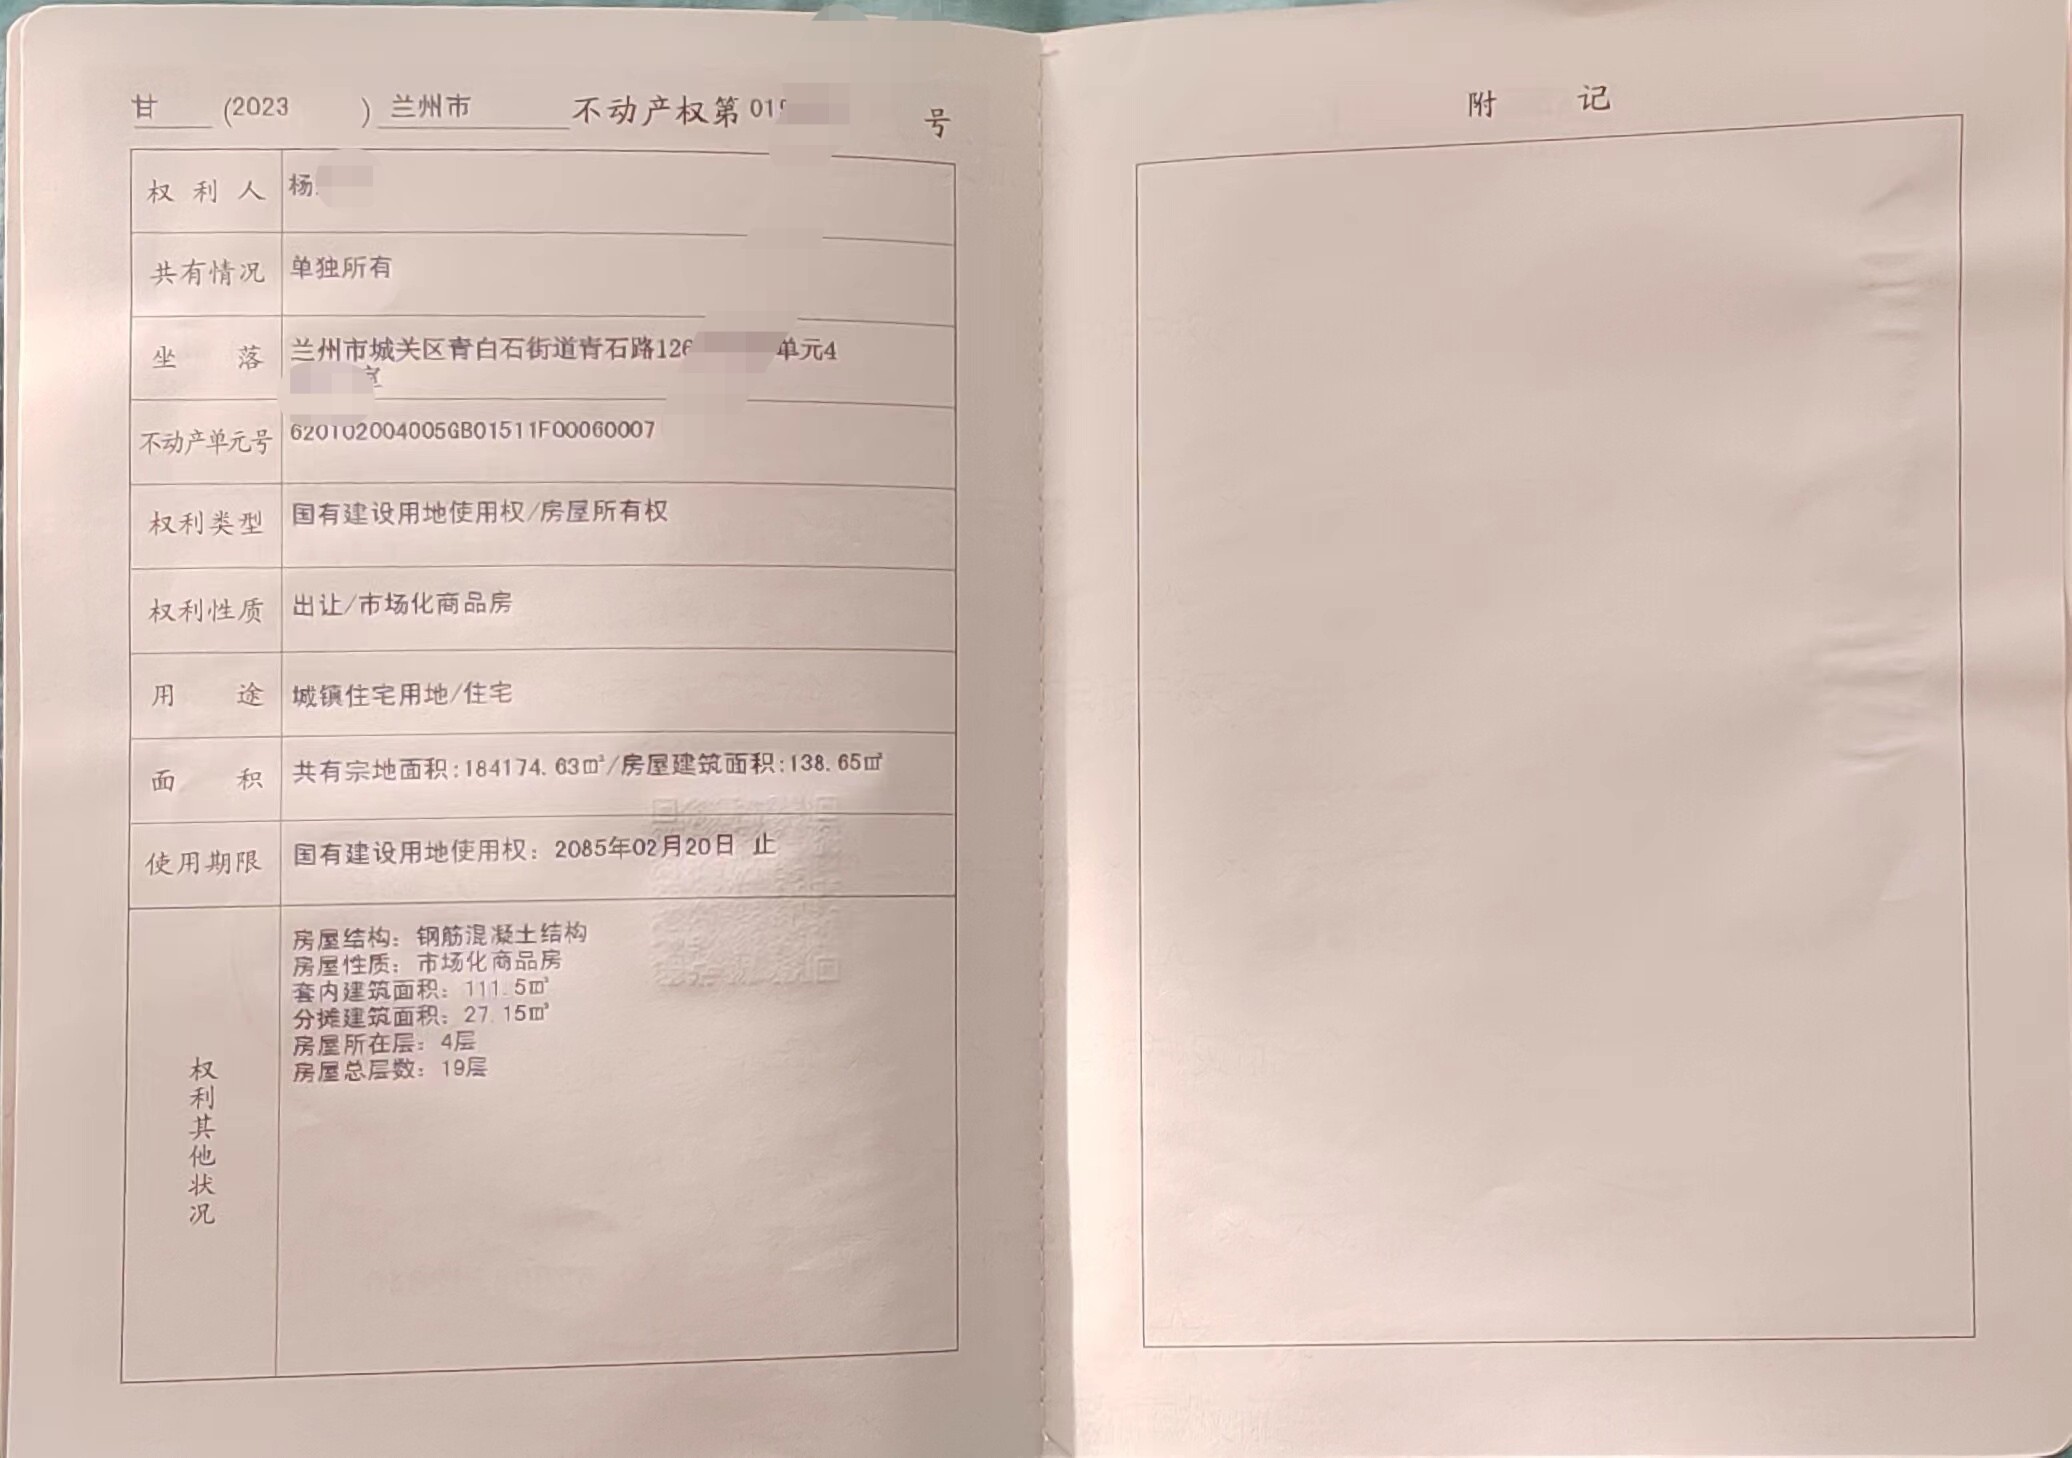 甘 (2023 ) 兰州市 不动产权第 01 号
权利人 杨
共有情况 单独所有
坐落 兰州市城关区青白石街道青石路126 单元4
室
不动产单元号 620102004005GB01511F00060007
权利类型 国有建设用地使用权/房屋所有权
权利性质 出让/市场化商品房
用途 城镇住宅用地/住宅
面积 共有宗地面积:184174.63㎡/房屋建筑面积:138.65㎡
使用期限 国有建设用地使用权：2085年02月20日 止
权利其他状况
房屋结构：钢筋混凝土结构
房屋性质：市场化商品房
套内建筑面积：111.5㎡
分摊建筑面积：27.15㎡
房屋所在层：4层
房屋总层数：19层
附 记